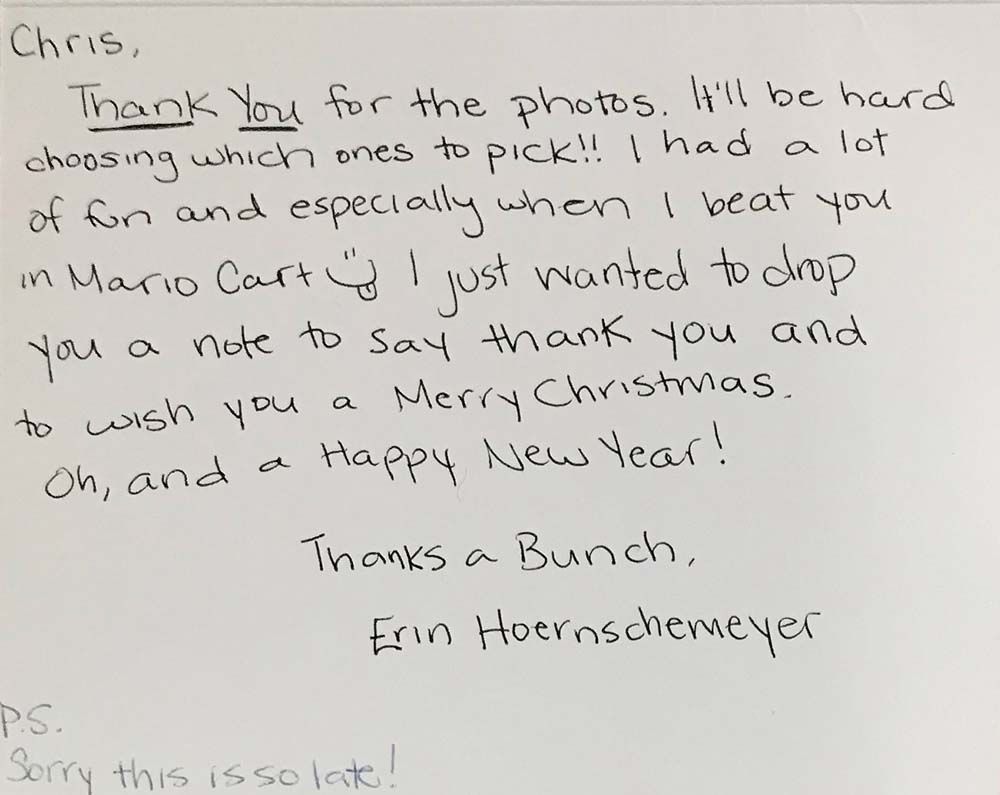 Chris,
Thank You for the photos. It'll be hard
choosing which ones to pick!! I had a lot
of fun and especially when I beat you
in Mario Cart I just wanted to drop
you a note to say thank you and
to wish you a Merry Christmas.
Oh, and a Happy New Year!
Thanks a Bunch,
Erin Hoernschemeyer
P.S.
Sorry this is so late!